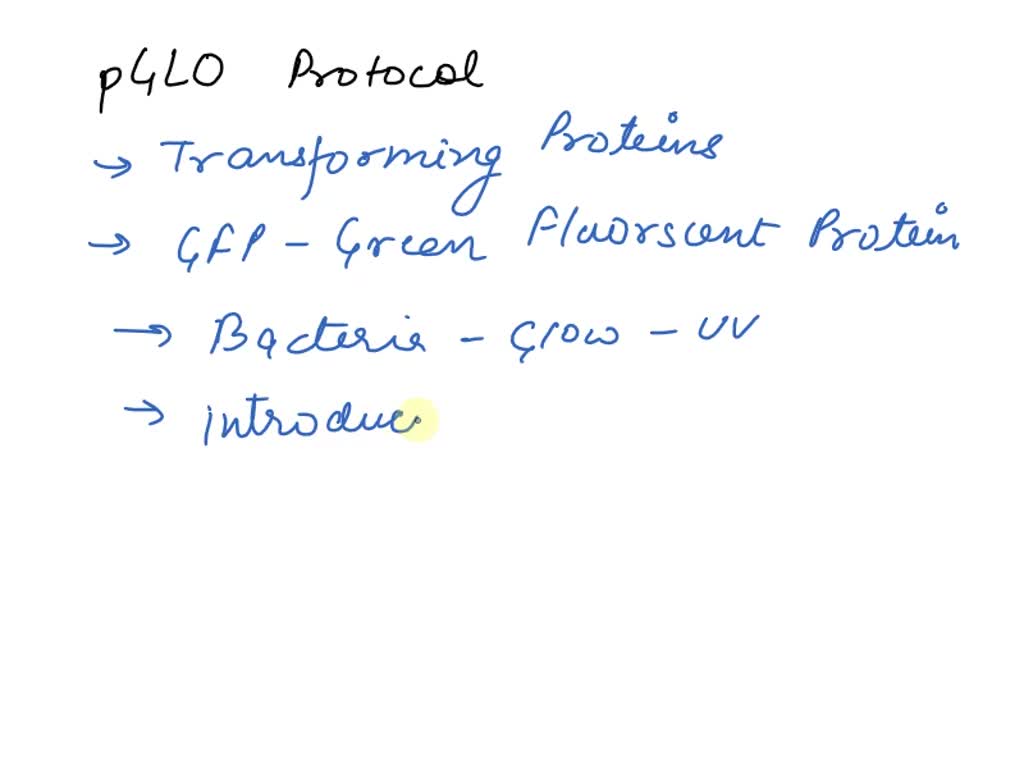 pGLO Protocal
→ Transforming Proteins
→ GFP - Green Fluorscent Protein
→ Bacteria - Glow - UV
→ introduc